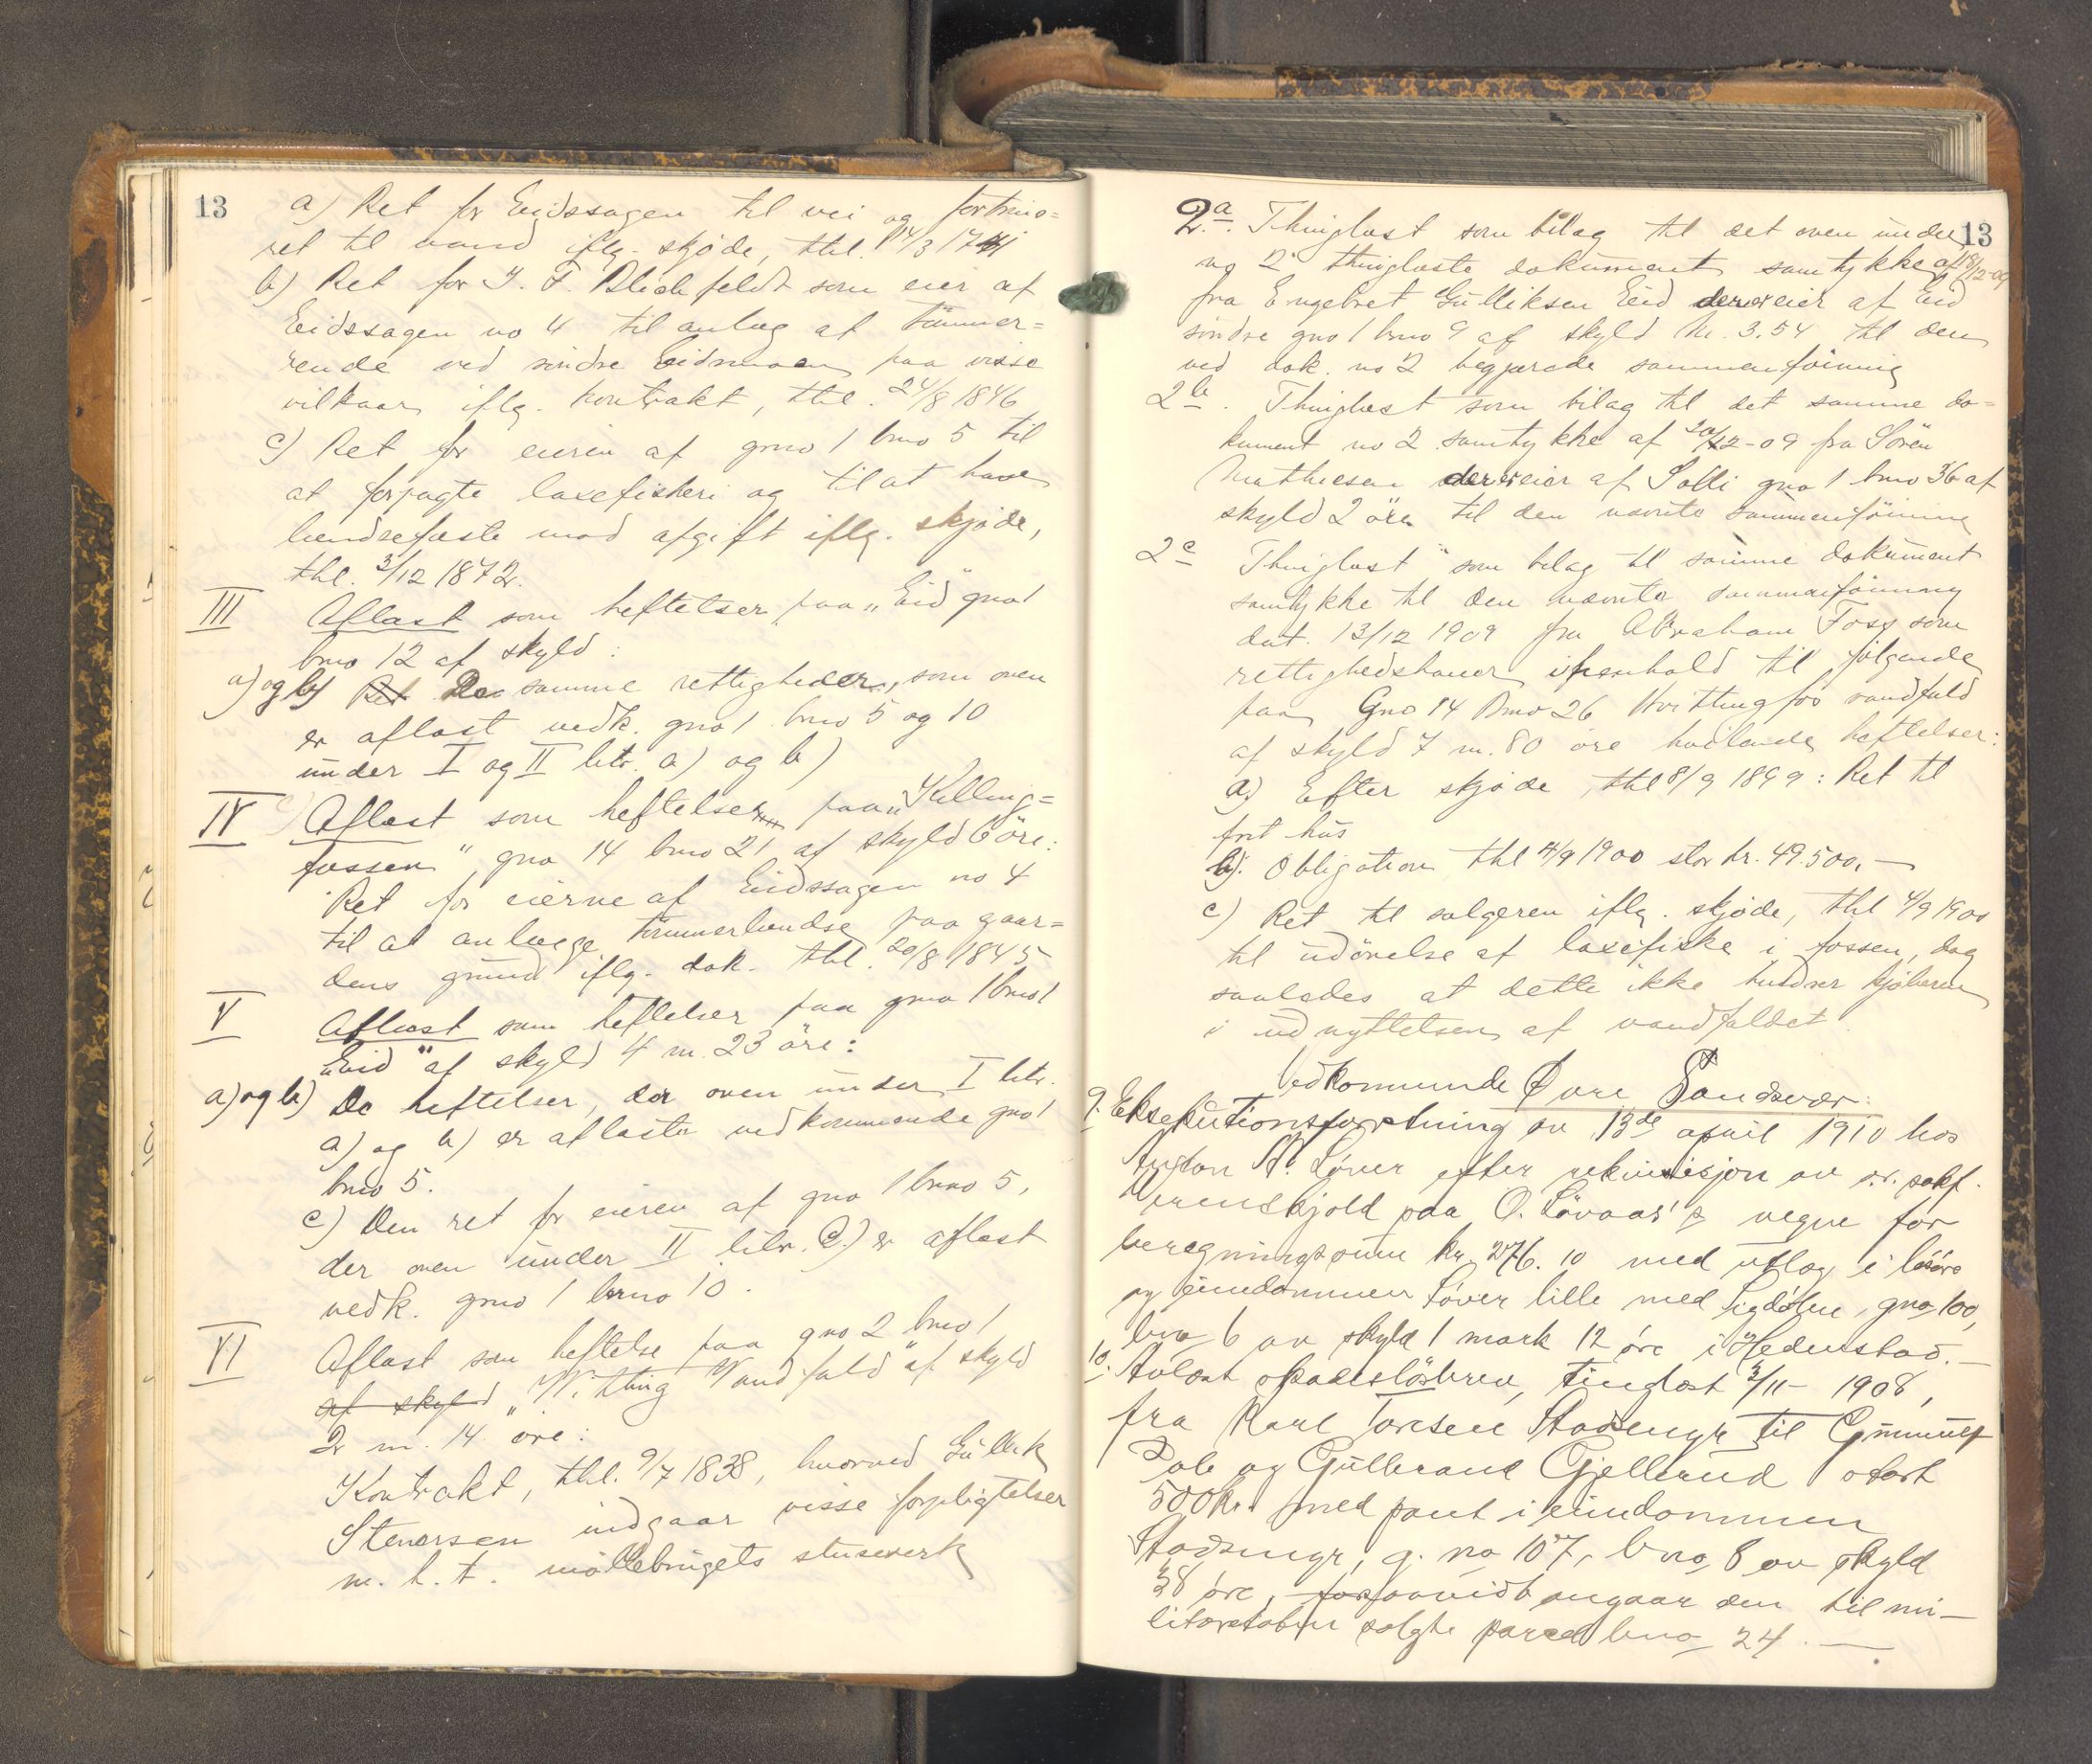 13
a) Ret for Eidssagen til vei og fortrins=
ret til vand iflg. skjøde, thl. 14/3 1741
b) Ret for J. F. Blichfeldt som eier af
Eidssagen no 4 til anlæg af tømmer=
rende ved søndre Eidsmoen paa visse
vilkaar iflg. kontrakt, thl. 24/8 1846
c) Ret for eieren af gno 1 bno 5 til
at forpagte laxefiskeri og til at have
lændsefæste mod afgift iflg. skjøde,
thl. 3/12 1872.
III Aflæst som heftelser paa „Eid" gno 1
bno 12 af skyld :
a) og b) Ret De samme rettigheder, som oven
er aflæst vedk. gno 1 bno 5 og 10
under I og II litr. a) og b)
IV Aflæst som heftelser paa „Killing=
fossen" gno 14 bno 21 af skyld 6 öre:
Ret for eierne af Eidssagen no 4
til at anlægge tømmerlændse paa gaar=
dens grund iflg. dok. thl. 20/8 1845
V Aflæst som heftelser paa gno 1 bno 1
„Eid" af skyld 4 m. 23 öre:
a) og b) De heftelser, der oven under I litr.
a) og b) er aflæste vedkommende gno 1
bno 5.
c) Den ret for eieren af gno 1 bno 5,
der oven under II litr. c) er aflæst
vedk. gno 1 bno 10.
VI Aflæst som heftelse paa gno 2 bno 1
af skyld „Witting Vandfald" af skyld
2 m. 14 öre:
Kontrakt, thl. 9/7 1838, hvorved Gullik
Stenersen indgaar visse forpligtelser
m. h. t. møllebrugets stuseverk
13
2a Thinglæst som bilag til det oven under
no 2 thinglæste dokument samtykke af 18/12-09
fra Engebret Gulliksen Eid der er eier af Eid
søndre gno 1 bno 9 af skyld M. 3.54 til den
ved dok. no 2 begjærede sammenføining
2b. Thinglæst som bilag til det samme do=
kument no 2 samtykke af 20/12-09 fra Sören
Mathiesen der er eier af Solli gno 1 bno 36 af
skyld 2 öre til den nævnte sammenföining
2c Thinglæst som bilag til samme dokument
samtykke til den nævnte sammenføining
dat. 13/12 1909 fra Abraham Foss som
rettighedshaver i henhold til følgende
paa Gno 14 Bno 26 Hvittingfos vandfald
af skyld 7 m. 80 øre hvilende heftelser:
a) Efter skjøde, thl 8/9 1899: Ret til
frit hus
b) Obligation thl 4/9 1900 stor kr. 49.500.—
c) Ret til sælgeren iflg. skjøde, thl 4/9 1900
til udövelse af laxefiske i fossen, dog
saaledes at dette ikke hindrer kjøberen
i udnyttelsen af vandfaldet.
Vedkommende Øvre Sandsvær:
9. Eksekutionsforretning av 13de april 1910 hos
Anton A. Löver efter rekvisisjon av o.r. sakf.
paa O. Lövaas's vegne for
beregningssum kr. 276.10 med utlæg i løsöre
og eiendommen Løver lille med gno. 100,
bno 6 av skyld 1 mark 12 øre i Hedenstad.—
10. Avlæst skadeslösbrev, tinglæst 3/11- 1908,
fra Karl Torsen Stadsengr til
og Gulbrand Gjellerud stort
500 kr. med pant i eiendommen
Stadsengr, g. no 107, b no 8 av skyld
38 øre, forsaavidt angaar den til mi—
litæretaten solgte parcel bno 24.—